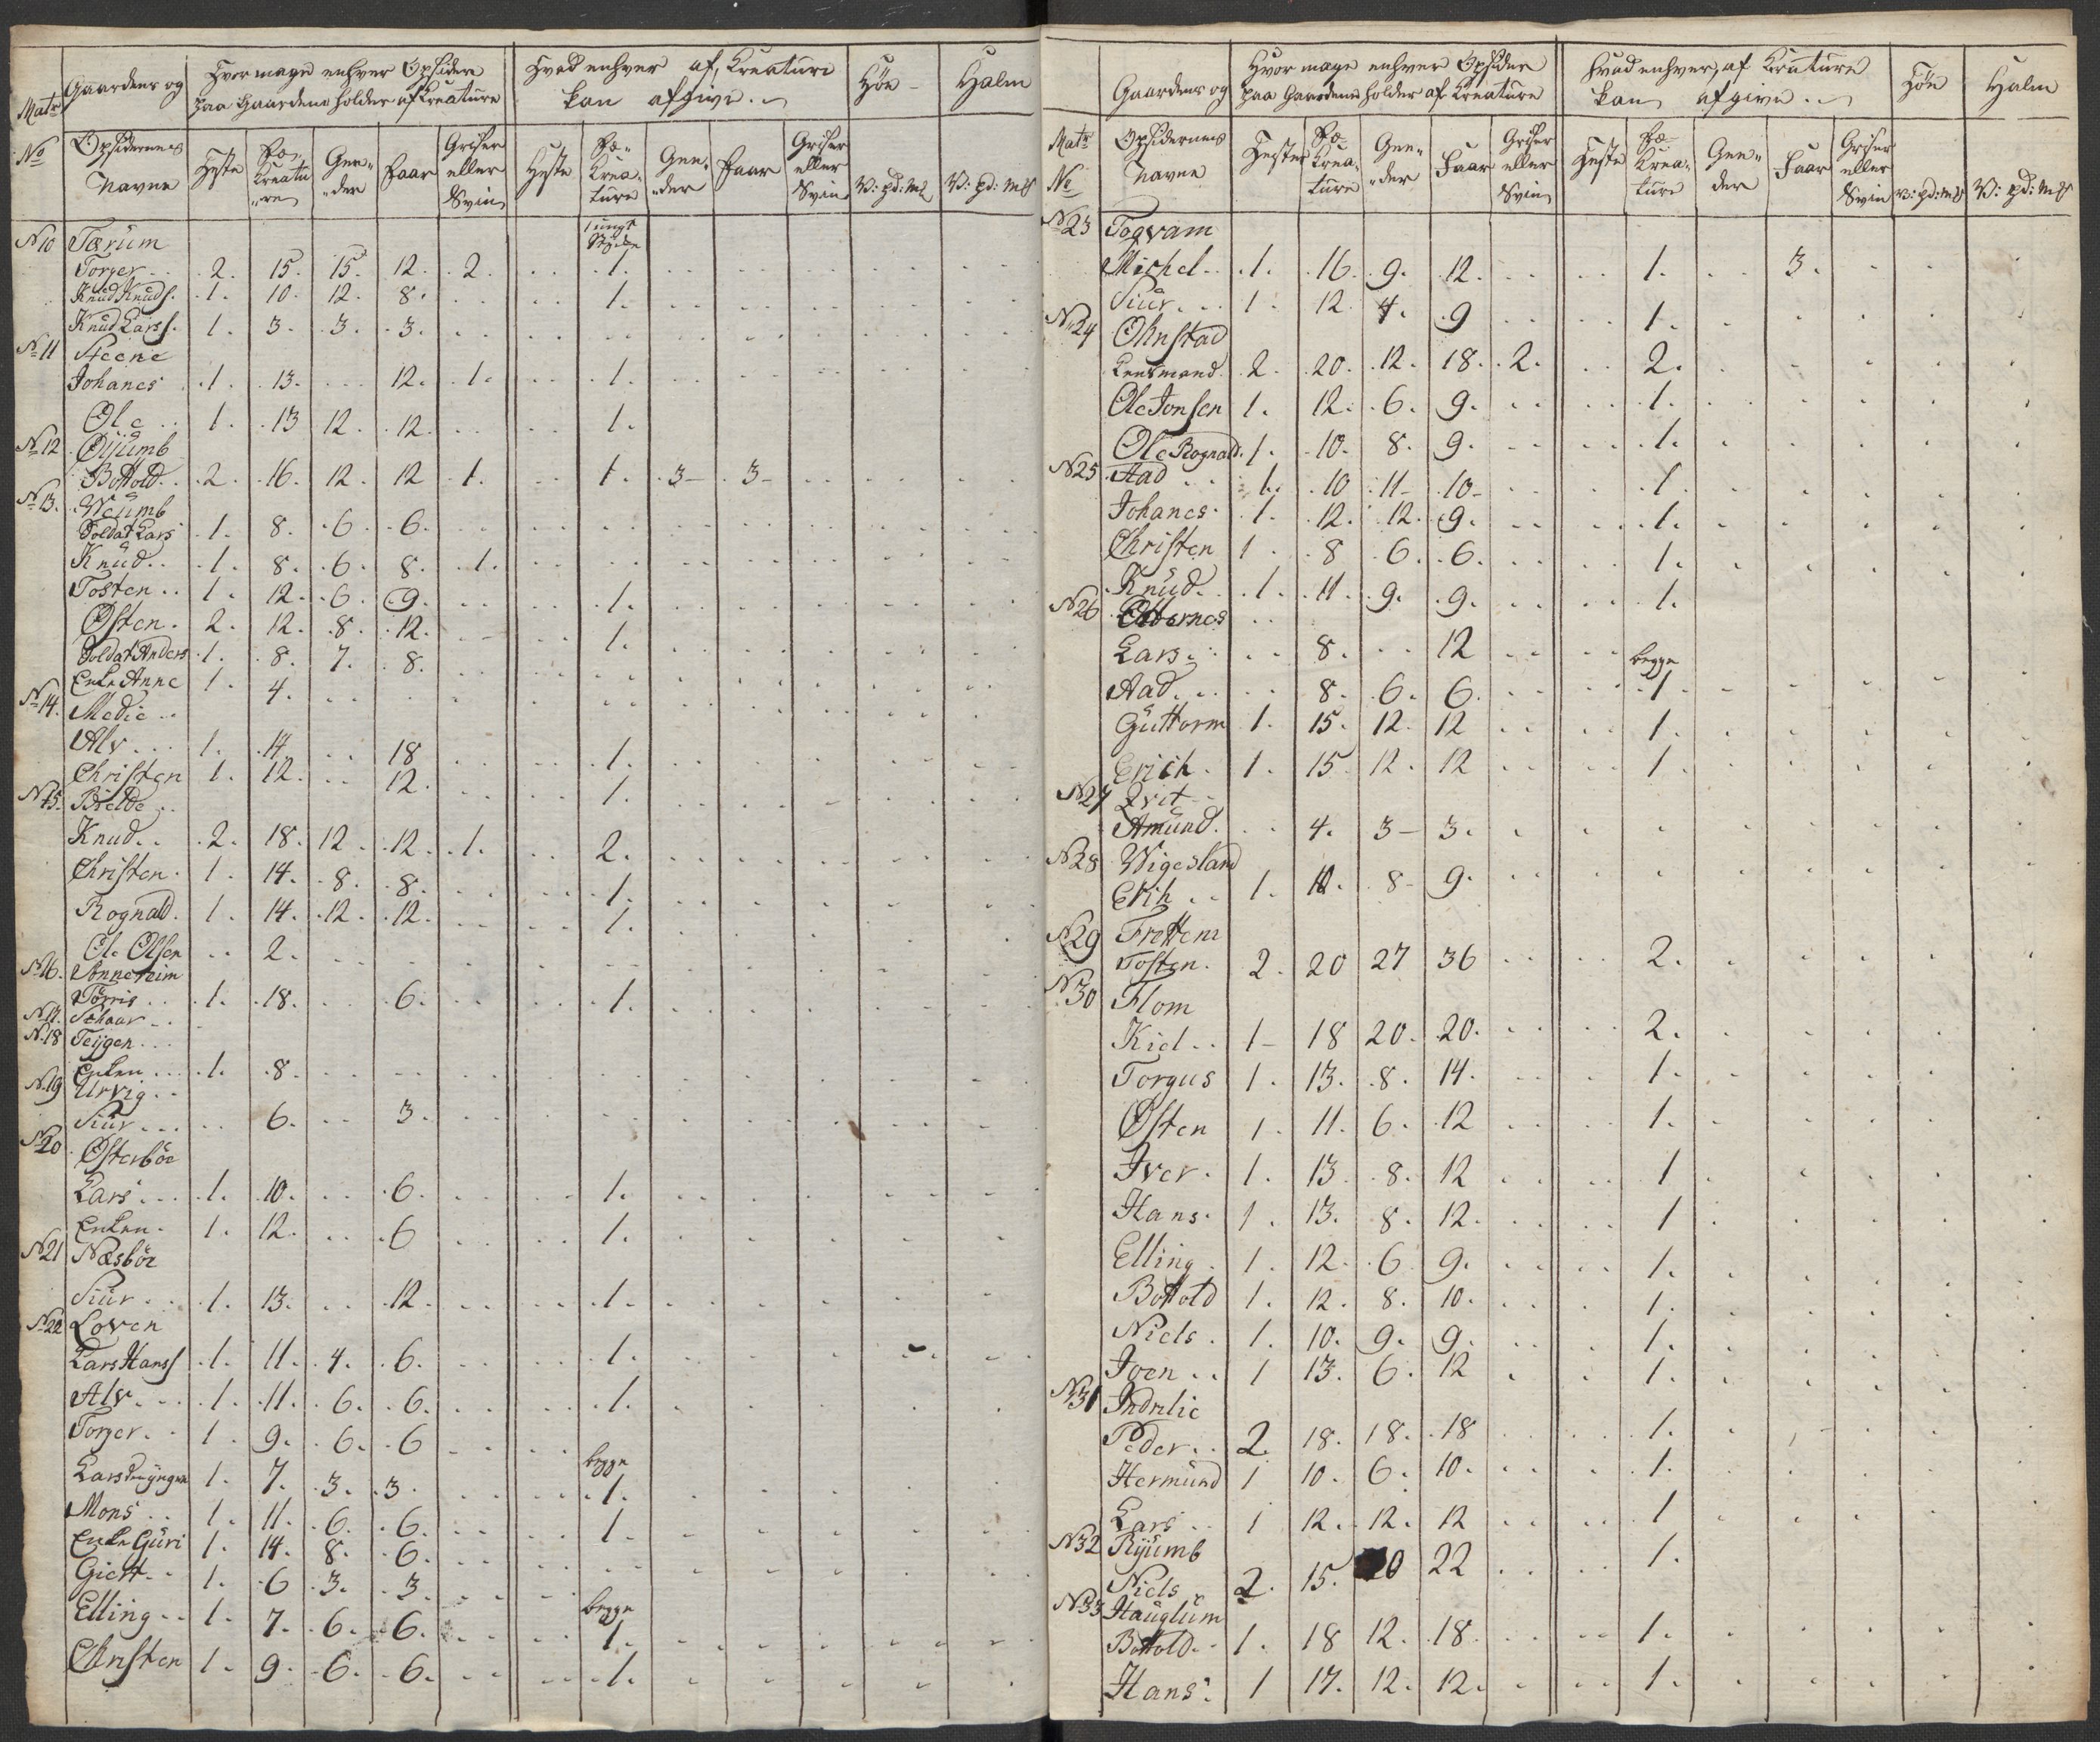 Matr No | Gaardens og Opsidernes Navne | Hvor mage enhver Opsidere paa Gaardens holder af Kreature | Hvad enhver af Kreature kan afgive | Høe | Halm
Heste | Fæ-Kreature | Gee-der | Faar | Griser eller Svin | Heste | Fæ-Kreature | Gee-der | Faar | Griser eller Svin | V: pd: m | V: pd: m
No 10 Tærum
Torger . . 2. 15. 15. 12. 2. 1 ungt Stykke 1.
Knud Knuds. 1. 10. 12. 8. 1.
Knud Larss. 1. 3. 3. 3.
No 11 Steene
Johanes 1. 13. . . 12. 1. 1.
Ole . . 1. 13 12. 12. 1.
No 12 Øijumb
Bottold . . 2. 16. 12. 12 1. 1. 3- 3-
No 13. Weumb
Soldat Lars 1. 8. 6. 6.
Knud . . 1. 8. 6. 8. 1.
Tosten . . 1. 12. 6. 9. 1.
Østen . 2. 12. 8. 12. 1.
Soldat Anders 1. 8. 7. 8.
Enke Anne 1. 4.
No 14. Medie . .
Alv . . . 1. 14. . . 18 1.
Christen 1. 12. . . 12. 1.
No 15. Brelde . .
Knud . . 2. 18. 12. 12. 1. 2.
Christen . 1. 14. 8. 8. 1.
Rognald. 1. 14. 12. 12. 1.
Ole Olsen . . 2.
No 16. Sønnereim
Torris . . 1. 18. . . 6. 1.
No 17. Schaar . .
No 18 Teijgen . . .
Enken . . . 1. 8.
No 19 Urvig . .
Siur . . . . . 6. . . 3.
No 20 Østerböe
Lars . . . 1. 10. . . 6. 1.
Enken . 1. 12. . . 6 1.
No 21 Næsböe
Siur . . 1. 13. . . 12. 1.
No 22 Loven
Lars Hanss 1. 11. 4. 6. 1.
Alv . . . 1. 11. 6. 6. 1.
Torger . . 1. 9. 6. 6
Lars den yngre 1. 7. 3. 3. begge 1.
Mons . . 1. 11. 6. 6. 1.
Enke Guri 1. 14. 8. 6.
Giert . . 1. 6 3. 3.
Elling . . 1. 7. 6. 6. begge 1.
Christen 1. 9. 6. 6. 1.
Matr No | Gaardens og Opsidernes Navne | Hvor mage enhver Opsidere paa Gaardene holder af Kreature | Hvad enhver af Kreature kan afgive | Høe | Halm
Hester | Fæ-Kreature | Gee-der | Faar | Griser eller Svin | Heste | Fæ-Kreature | Gee-der | Faar | Griser eller Svin | V: pd: m | V: pd: m
No 23 Togvam
Michel . . 1. 16. 9. 12. 1. 3.
Siur . . . 1. 12. 4. 9 1.
No 24 Ohnstad
Lensmand. 2. 20. 12. 18. 2. 2.
Ole Jonsen 1. 12. 6. 9. 1.
Ole Rognald. 1. 10. 8. 9. 1.
No 25 Aad . . 1. 10 11- 10- 1.
Johanes . 1. 12. 12. 9. 1.
Christen 1. 8 6. 6. 1.
Knud . . 1. 11. 9. 9. 1.
No 26 Otternes
Lars . . . . 8. . . 12
Aad . . . . 8. 6. 6. begge 1.
Guttorm 1. 15. 12. 12 1.
Erich . 1. 15. 12. 12 1.
No 27 Qvit
Amund. . . 4. 3- 3.
No 28 Wigesland
Erich . . 1. 11. 8- 9.
No 29 Frettem
Tosten. 2. 20 27 36 2.
No 30 Flom
Kiel . . 1- 18 20. 20. 2.
Torgus 1. 13. 8. 14. 1.
Østen 1. 11. 6. 12 1.
Iver . 1. 13. 8. 12 1
Hans . 1. 13. 8. 12. 1
Elling . 1. 12. 6. 9. 1.
Bottold 1. 12. 8. 10. 1.
Niels . 1. 10. 9. 9. 1.
Joen . . 1 13. 6. 12 1.
No 31 Indrelie
Peder . . 2. 18. 18. 18 1.
Hermund 1 10. 6. 10. 1.
Lars . . 1 12. 12. 12 1
No 32 Ryumb
Niels 2. 15. 20 22 1.
No 33 Hauglum
Bottold . . 1. 18 12. 18. 1.
Hans . 1 17. 12. 12. 1.